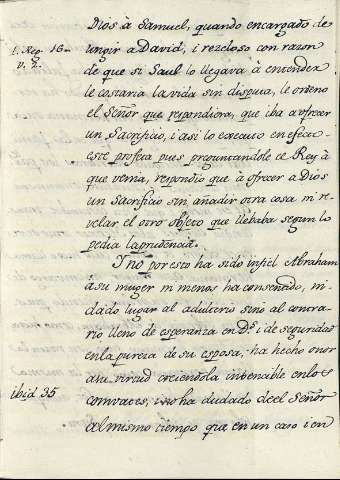 Dios à Samuel, quando encargado de
1. Reg. 16
v. 2.
ungir a David, i rezeloso con razon
de que si Saul lo llegava à entender
le costaria la vida sin disputa, le ordeno
el Señor que respondiera, que iba a ofrecer
un Sacrificio, i asi lo executo en efecto
este profeta pues preguntandole el Rey à
que venia, respondio que à ofrecer a Dios
un Sacrificio sin añadir otra cosa ni re-
velar el otro objeto que llebaba segun lo
pedia la prudencia.
I no por esto ha sido infiel Abraham
à su muger ni menos ha consentido, ni
dado lugar al adulterio sino al contra-
rio lleno de esperanza en D.s i de seguridad
en la pureza de su esposa, ha hecho onor
a su virtud creiendola inbencible en los
ibid 35
combates, i no ha dudado de el Señor
al mismo tiempo que en un caso i en